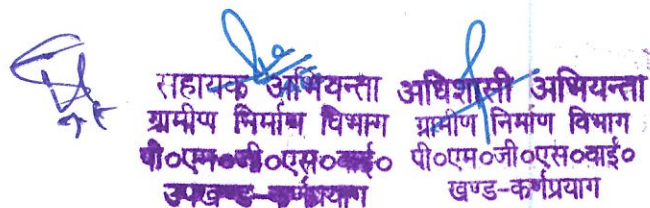 सहायक अभियन्ता
ग्रामीण निर्माण विभाग
पी०एम०जी०एस०वाई०
उपखण्ड-कर्णप्रयाग
अधिशासी अभियन्ता
ग्रामीण निर्माण विभाग
पी०एम०जी०एस०वाई०
खण्ड-कर्णप्रयाग